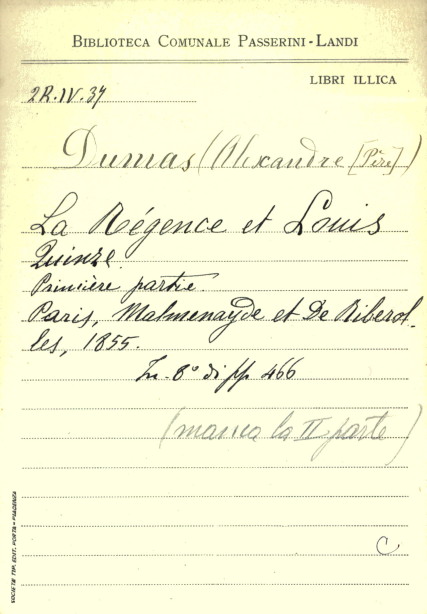 BIBLIOTECA COMUNALE PASSERINI-LANDI
LIBRI ILLICA
2R.IV.37
Dumas (Alexandre [Père])
La Régence et Louis
Quinze.
Première partie.
Paris, Malmenayde et De Riberol-
les, 1855.
In-8° di pp 466
(manca la II parte)
C
SOCIETÀ TIP. EDIT. PORTA - PIACENZA